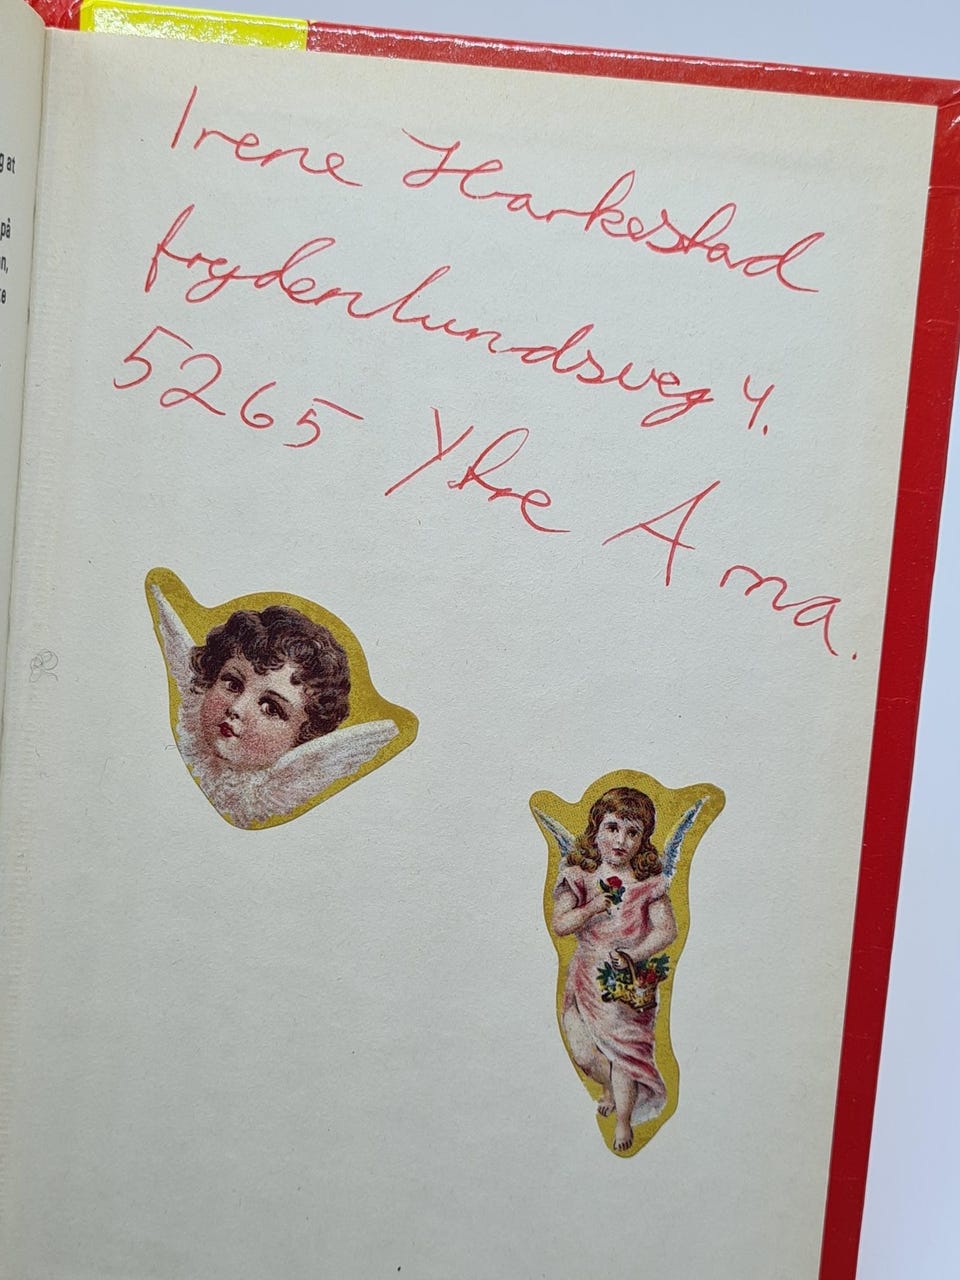 Irene Harkestad
frydenlundsveg 4.
5265 Ytre Arna.
g at
på
n,